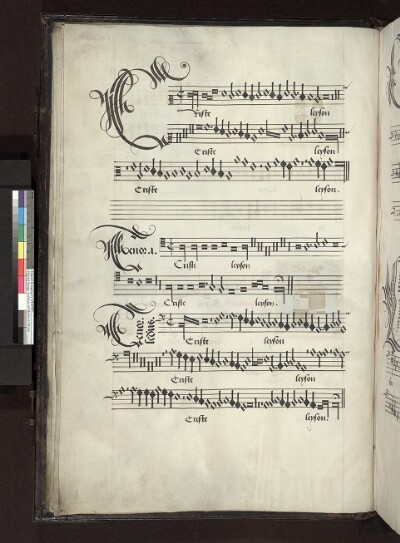 Criste leyson
Criste leyson
Criste leyson.
Tenor .1. Criste leyson
Criste leyson.
Tenor Criste leyson
Criste leyson
Criste leyson.